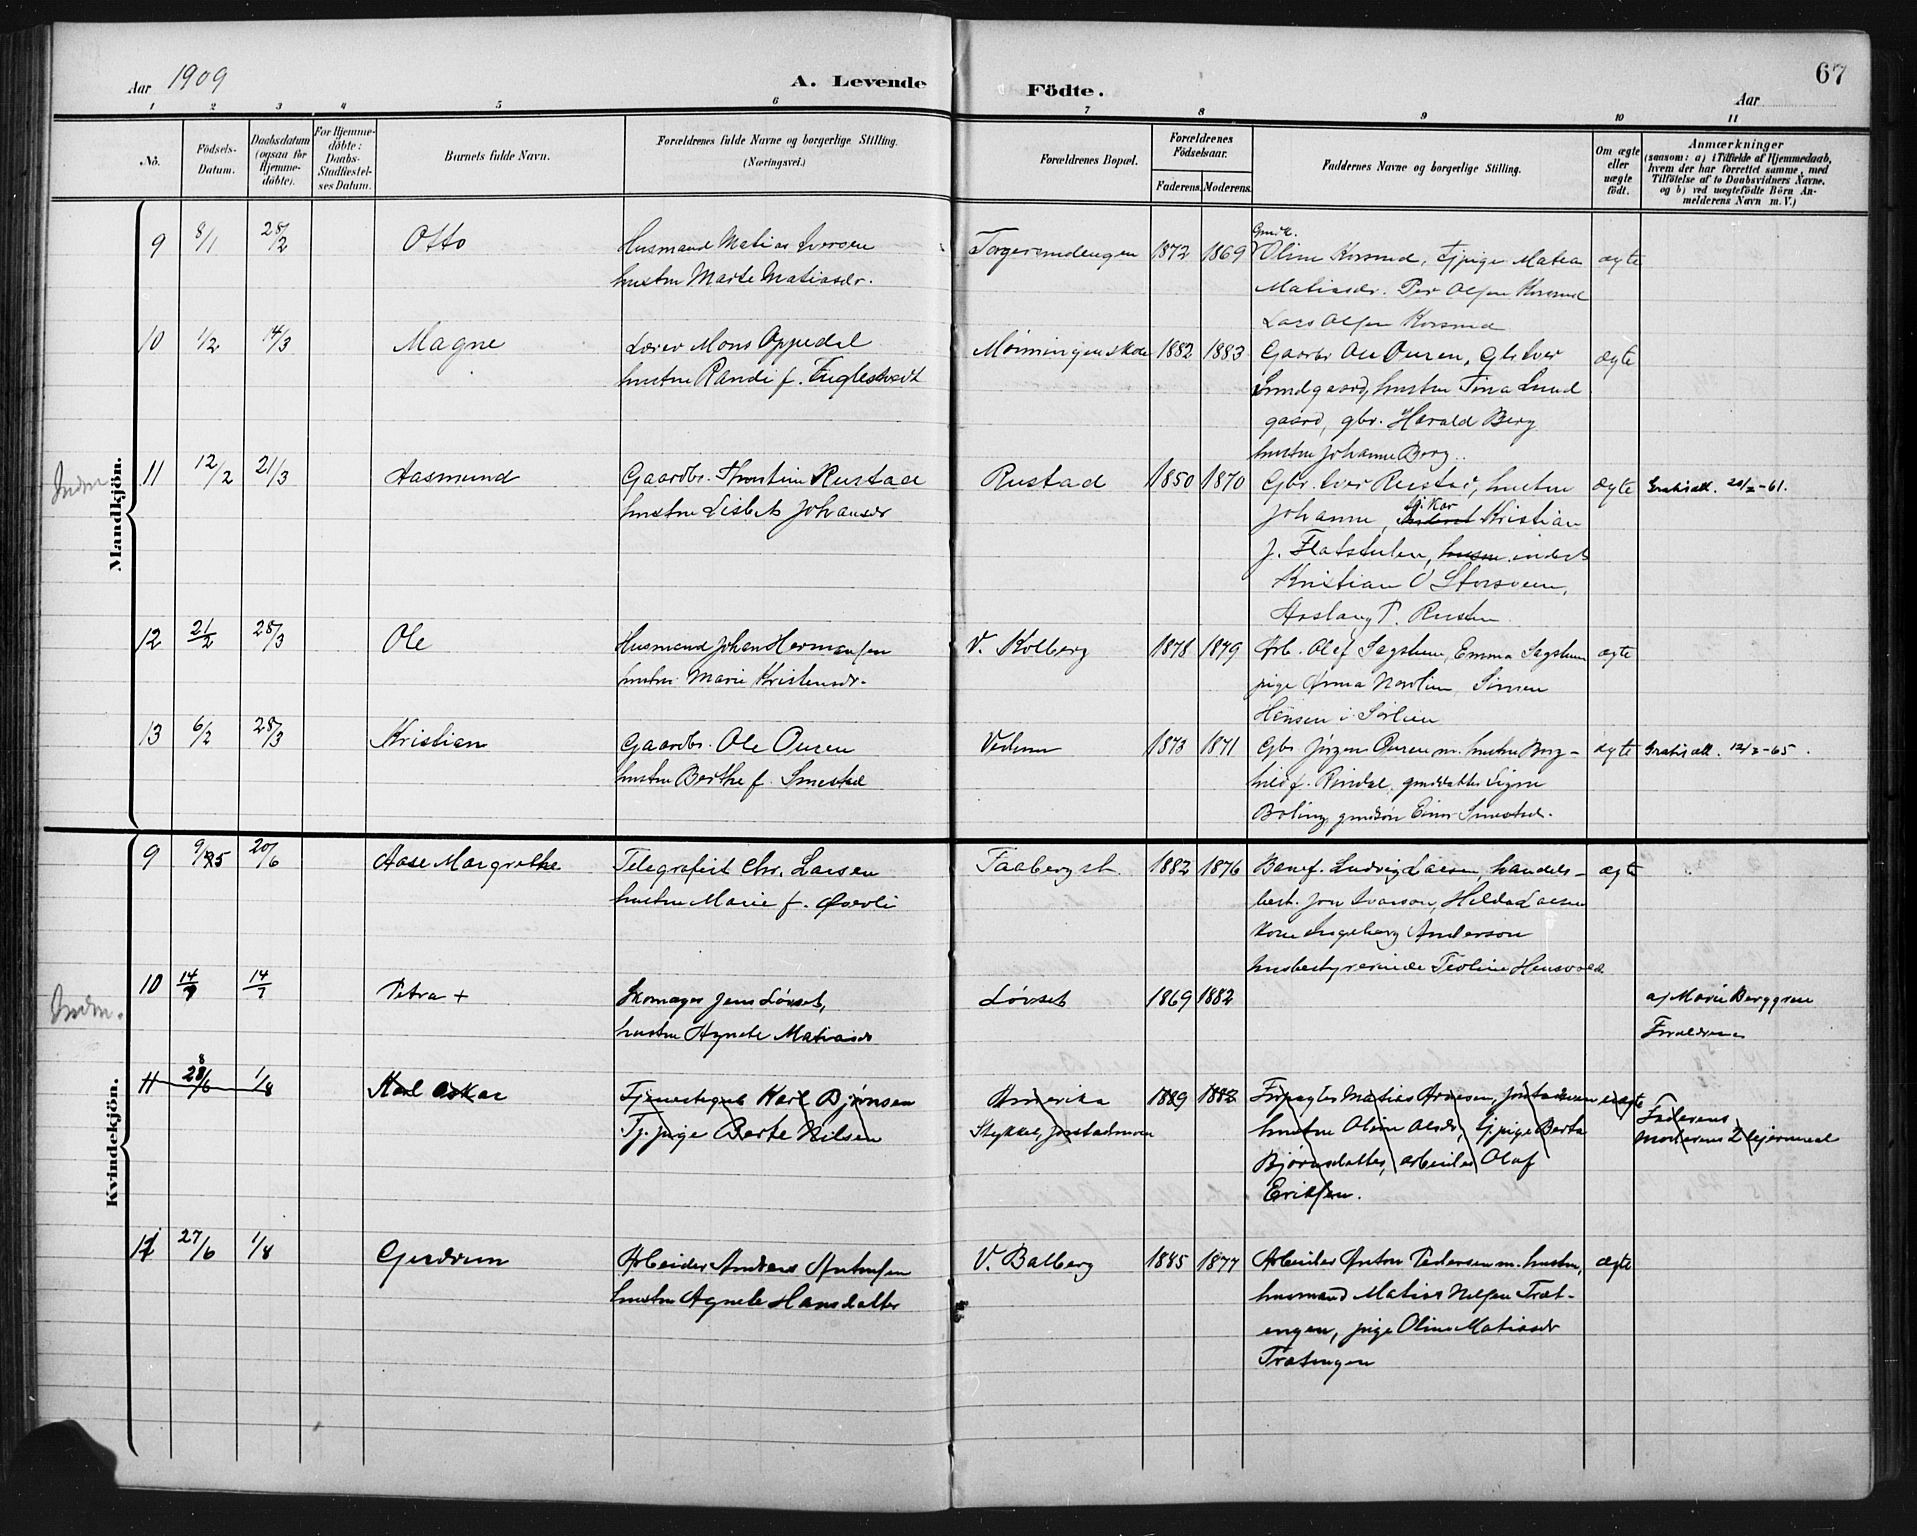 Aar 1909
A. Levende
Födte.
67
Aar
1 2 3 4 5 6 7 8 9 10 11
No.
Födsels-
Datum.
Daabsdatum
(ogsaa för
Hjemme-
döbte).
For Hjemme-
döbte:
Daabs-
Stadfæstel-
ses Datum.
Barnets fulde Navn.
Forældrenes fulde Navne og borgerlige Stilling.
(Næringsvei.)
Forældrenes Bopæl.
Forældrenes
Födselsaar.
Faderens. Moderens.
Faddernes Navne og borgerlige Stilling.
Om ægte
eller
uægte
födt.
Anmærkninger
(saasom: a) i Tilfælde af Hjemmedaab,
hvem der har forrettet samme, med
Tilföielse af to Daabsvidners Navne.
og b) ved uægtefödte Börn An-
melderens Navn m. V.)
Mandkjön.
9 8/1 28/2 Otto
Husmand Matias Iversen
hustru Marte Matiasdr.
1872 1869
Oline Korsrud, Tj.pige Matea
Matiasdr. Per Olsen Korsrud
Lars Olsen Korsrud
ægte
10 1/2 14/3 Magne
Lærer Mons Oppedal
hustru Randi f. Fuglestvedt
1882 1883
Gaardbr Ole Ouren, Gbr Iver
Lundgaard, hustru Tina Lund
gaard, gbr. Harald Berg
hustru Johanne Berg.
ægte
11 12/2 21/3 Aasmund
Gaardbr. Thorstein Rustad
hustru Lisbet Johansdr
Rustad 1850 1870
Gbr. Iver Rustad, hustru
Johanne, Kristian
J. Flatstulen, inderst
Kristian O Storsveen,
Aaslaug P. Rusten
ægte
12 21/2 28/3 Ole
Husmand Johan Hermansen
hustru Marie Kristensdr.
V. Kolberg 1878 1879
Arb. Olef Sagstuen, Emma Sagstuen
pige Anna Nordlien, Simen
Hansen i Sørlien
ægte
13 6/2 28/3 Kristian
Gaardbr. Ole Ouren
hustru Berthe f. Smestad
1873 1871
Gbr Jørgen Ouren m. hustru Borg-
hild f. Rindal, gmddatter Signe
Boling, gmdsøn Einar Smestad.
ægte
Kvindekjön.
9 9/5 20/6 Aase Margrethe
Telegrafist Chr. Larsen
hustru Marie f. Qvevli
Faaberg st 1882 1876
Banef. Ludvig Larsen, handels-
best. Jon Ivarson, Hilda Larsen
Kone Ingeborg Anderson
husbestyrerinde Teoline Hensvold
ægte
10 14/7 14/7 Petra +
Skomager Jens Lövset,
hustru Agnete Matiasdr
Lövset 1869 1882
a) Marie Berggren
Forældrene
11 28/6 1/8 Karl Oskar
Tjenestegut Karl Bjørnsen
Tj.pige Berte Nilsen
Amerika
Stykket, Jørstadmoen
1889 1882
Forpagter Matias Arnesen, Jörstadmoen
hustru Oline Olsdr, tj.pige Berta
Bjørnsdatter, arbeider Olaf
Eriksen.
uægte
Faderens
Moderens 2 lejermaal
11 27/6 1/8 Gudrun
Arbeider Andreas Antonsen
hustru Agnete Hansdatter
V. Balberg 1885 1877
Arbeider Anton Pedersen m. hustru,
husmand Matias Nilsen Træt-
engen, pige Oline Matiasdr
Trætengen
ægte